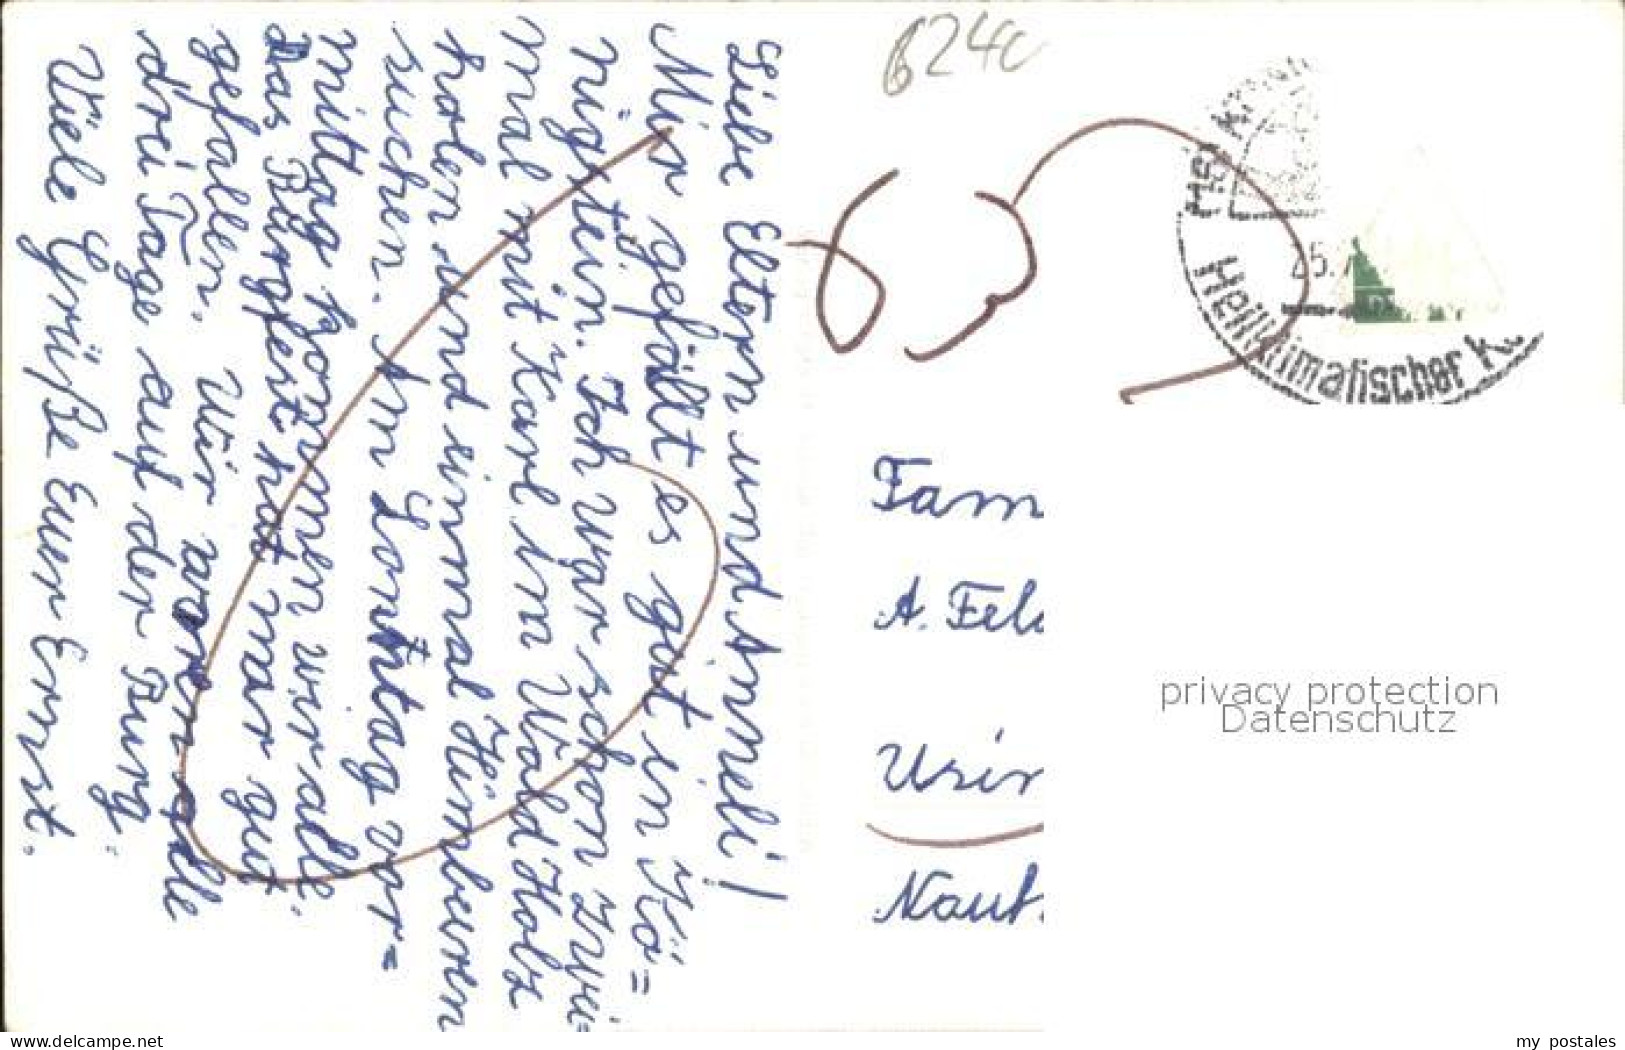 Liebe Eltern und Anneli!
Mir gefällt es gut in Kö=
nigstein. Ich war schon zwei=
mal mit Karl im Wald Holz
holen und einmal Himbeeren
suchen. Am Sonntag vor=
mittag kommen wir alle.
Das Burgfest hat mar gut
gefallen. Wir waren alle
drei Tage auf der Burg.
Viele Grüße Euer Ernst.
624c
25.
Heilklimatischer K
Fam
A. Feld
Usin
privacy protection
Datenschutz
www.delcampe.net
my_postales